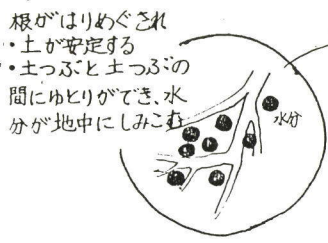 根がはりめぐされ
・土が安定する
・土つぶと土つぶの
間にゆとりができ、水
分が地中にしみこむ
水分